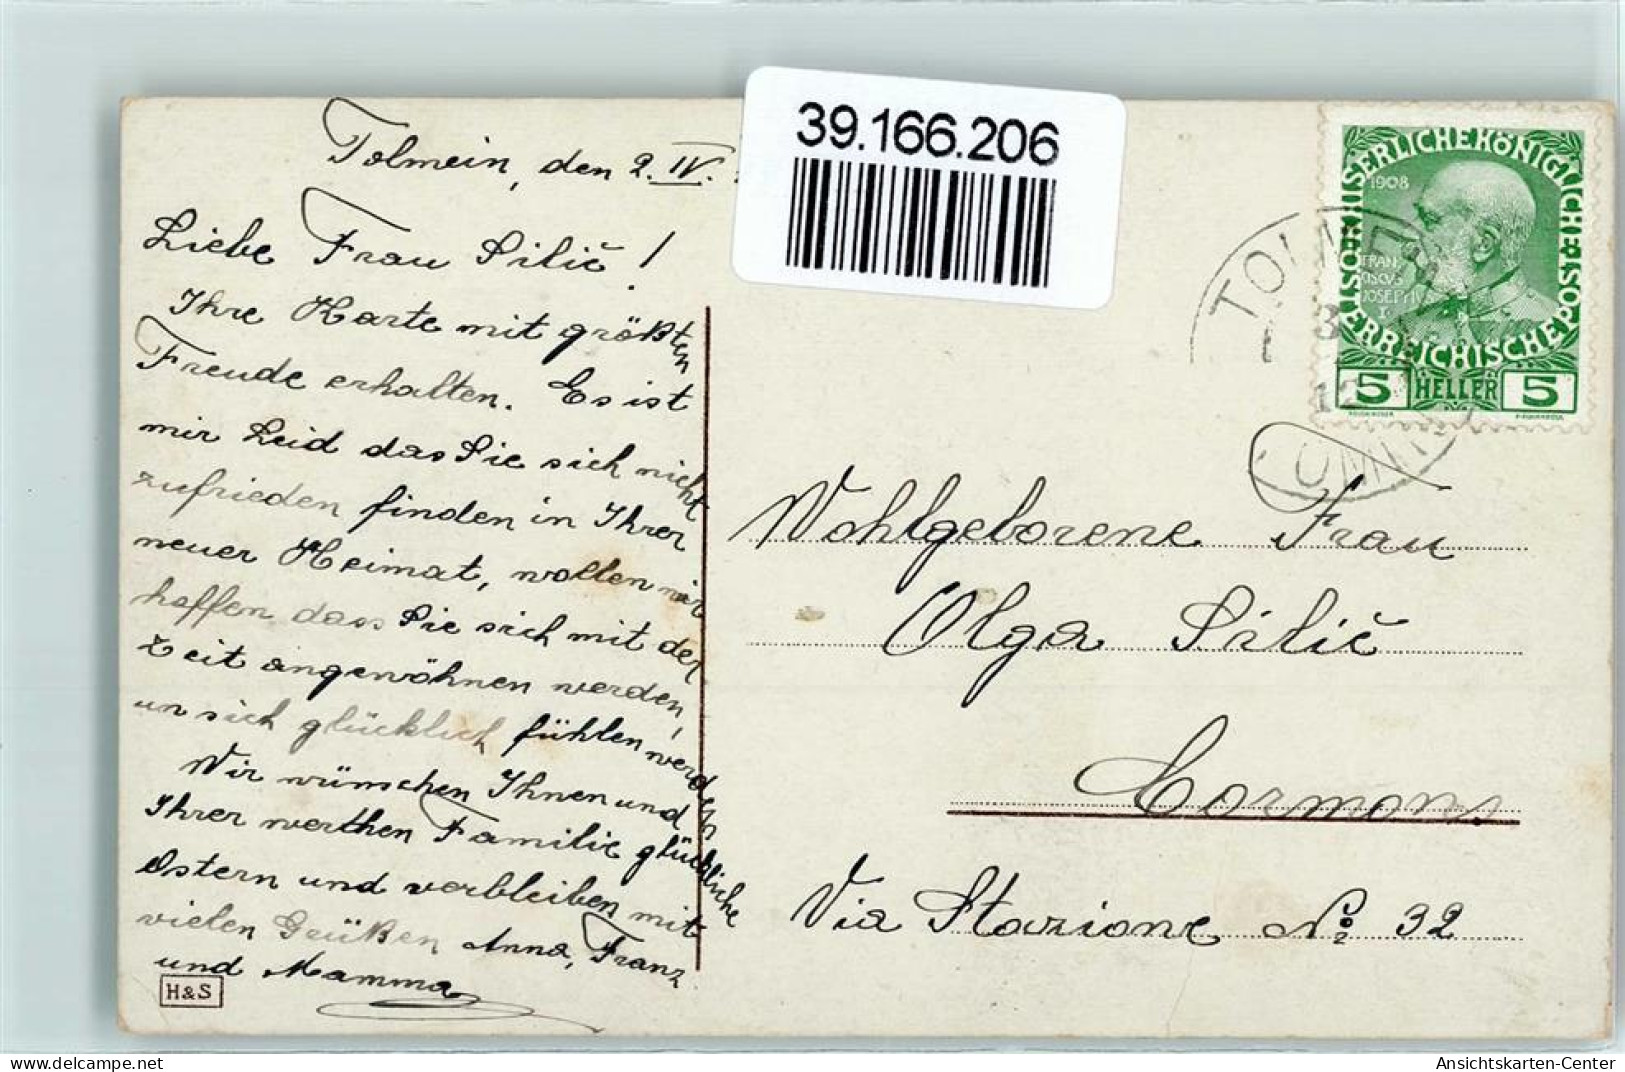 39.166.206
Tolmein, den 2. IV.
Liebe Frau Silič!
Ihre Karte mit größten
Freude erhalten. Es ist
mir Leid das Sie sich nicht
zufrieden finden in Ihrer
neuer Heimat, wollen wir
hoffen dass Sie sich mit der
Zeit angewöhnen werden,
un sich glücklich fühlen werden
Wir wünschen Ihnen und
Ihrer werthen Familie glückliche
Ostern und verbleiben mit
vielen Grüßen Anna, Franz
und Mamma
H&S
KAISERLICHE KÖNIGLICHE ÖSTERREICHISCHE POST
1908
FRAN
CISCVS
JOSEPHVS
I
5 HELLER 5
TOLMEIN
3
12
Wohlgeborene Frau
Olga Silič
Cormons
Via Stazione No 32
oldthing.de
Ansichtskarten-Center